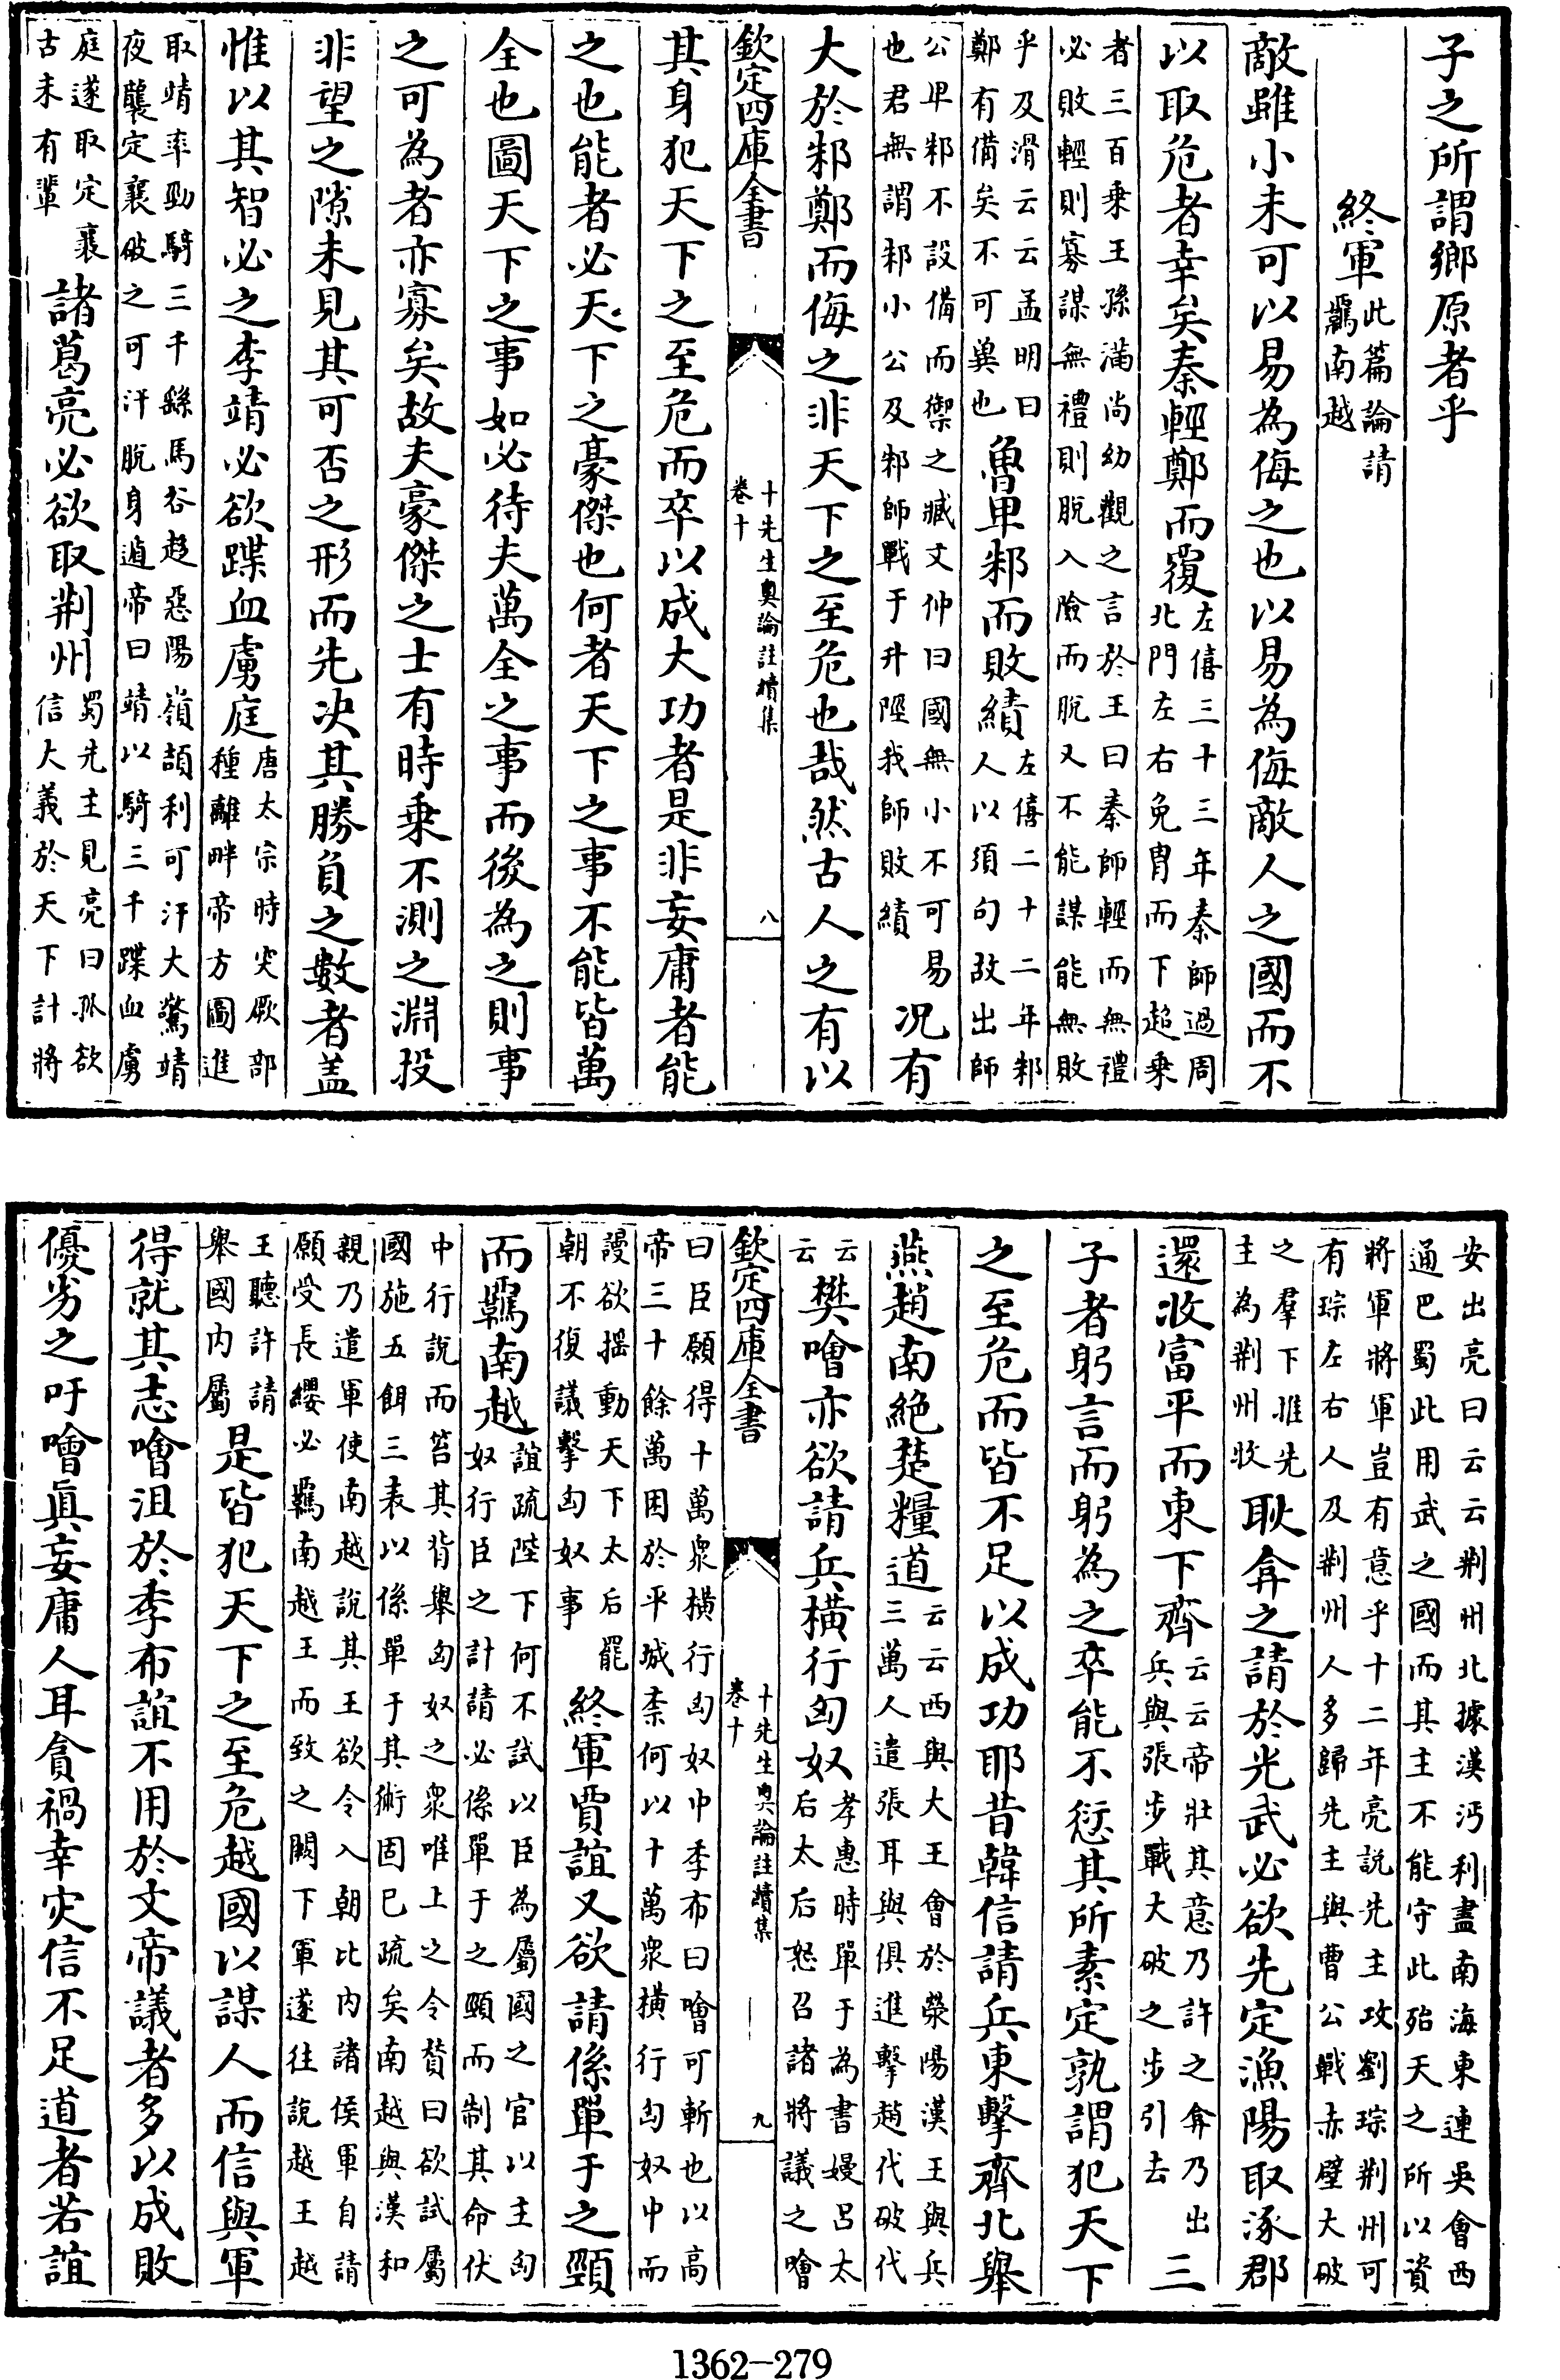 子之所謂鄉原者乎
終軍此篇論請
羈南越
敵雖小未可以易為侮之也以易為侮敵人之國而不
以取危者幸矣秦輕鄭而覆左僖三十三年秦師過周
北門左右免胄而下超乗
者三百乗王孫滿尚幼觀之言於王曰秦師輕而無禮
必敗輕則寡謀無禮則脱入險而脱又不能謀能無敗
乎及滑云云孟明曰
鄭有備矣不可冀也魯卑邾而敗績左僖二十二年邾
人以須句故出師
公卑邾不設備而禦之臧文仲曰國無小不可易
也君無謂邾小公及邾師戰于升陘我師敗績况有
大於邾鄭而侮之非天下之至危也哉然古人之有以
欽定四庫全書
十先生奥論註續集
卷十
八
其身犯天下之至危而卒以成大功者是非妄庸者能
之也能者必天下之豪傑也何者天下之事不能皆萬
全也圖天下之事如必待夫萬全之事而後為之則事
之可為者亦寡矣故夫豪傑之士有時乗不測之淵投
非望之隙未見其可否之形而先決其勝負之數者盖
惟以其智必之李靖必欲蹀血虜庭唐太宗時突厥部
種離畔帝方圖進
取靖率勁騎三千繇馬谷趍惡陽嶺頡利可汗大驚靖
夜襲定襄破之可汗脱身遁帝曰靖以騎三千蹀血虜
庭遂取定襄
古未有輩諸葛亮必欲取荆州蜀先主見亮曰孤欲
信大義於天下計將
安出亮曰云云荆州北據漢沔利盡南海東連吳會西
通巴蜀此用武之國而其主不能守此殆天之所以資
將軍將軍豈有意乎十二年亮説先主攻劉琮荆州可
有琮左右人及荆州人多歸先主與曹公戰赤壁大破
之羣下推先
主為荆州牧耿弇之請於光武必欲先定漁陽取涿郡
還收富平而東下齊云云帝壯其意乃許之弇乃出
兵與張步戰大破之步引去三
子者躬言而躬為之卒能不愆其所素定孰謂犯天下
之至危而皆不足以成功耶昔韓信請兵東擊齊北舉
燕趙南絶楚糧道云云西與大王會於滎陽漢王與兵
三萬人遣張耳與俱進擊趙代破代
云
云樊噲亦欲請兵横行匈奴孝惠時單于為書嫚吕太
后太后怒召諸將議之噲
欽定四庫全書
十先生奥論註續集
卷十
九
曰臣願得十萬衆横行匈奴中季布曰噲可斬也以高
帝三十餘萬困於平城柰何以十萬衆横行匈奴中而
謾欲揺動天下太后罷
朝不復議擊匈奴事終軍賈誼又欲請係單于之頸
而羈南越誼疏陛下何不試以臣為屬國之官以主匈
奴行臣之計請必係單于之頸而制其命伏
中行説而笞其背舉匈奴之衆唯上之令贊曰欲試屬
國施五餌三表以係單于其術固已疏矣南越與漢和
親乃遣軍使南越説其王欲令入朝比内諸侯軍自請
願受長纓必羈南越王而致之闕下軍遂往説越王越
王聽許請
舉國内屬是皆犯天下之至危越國以謀人而信與軍
得就其志噲沮於季布誼不用於文帝議者多以成敗
優劣之吁噲真妄庸人耳貪禍幸灾信不足道者若誼
1362—279